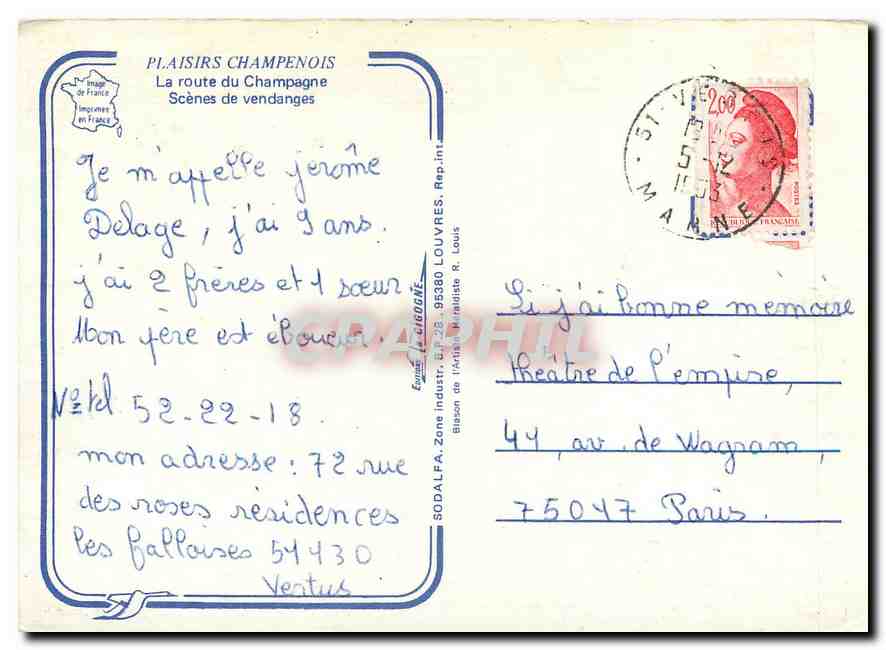 PLAISIRS CHAMPENOIS
La route du Champagne
Scènes de vendanges
Image
de France
Imprimée
en France
Je m'appelle jérôme
Delage, j'ai 9 ans.
j'ai 2 frères et 1 sœur.
Mon père est éboueur.
No tel 52-22-18
mon adresse : 72 rue
des roses résidences
les falloises 51130
Vertus
Editions La CIGOGNE
SODALFA. Zone industr. B.P. 28. 95380 LOUVRES. Rep.int.
Blason de l'Artiste Héraldiste R. Louis
CPAPHIL
51 - VERTUS
5 - 12
1983
MARNE
2,00
REPUBLIQUE FRANÇAISE
POSTES
Si j'ai bonne mémoire
théâtre de l'empire,
41, av. de Wagram,
75017 Paris.